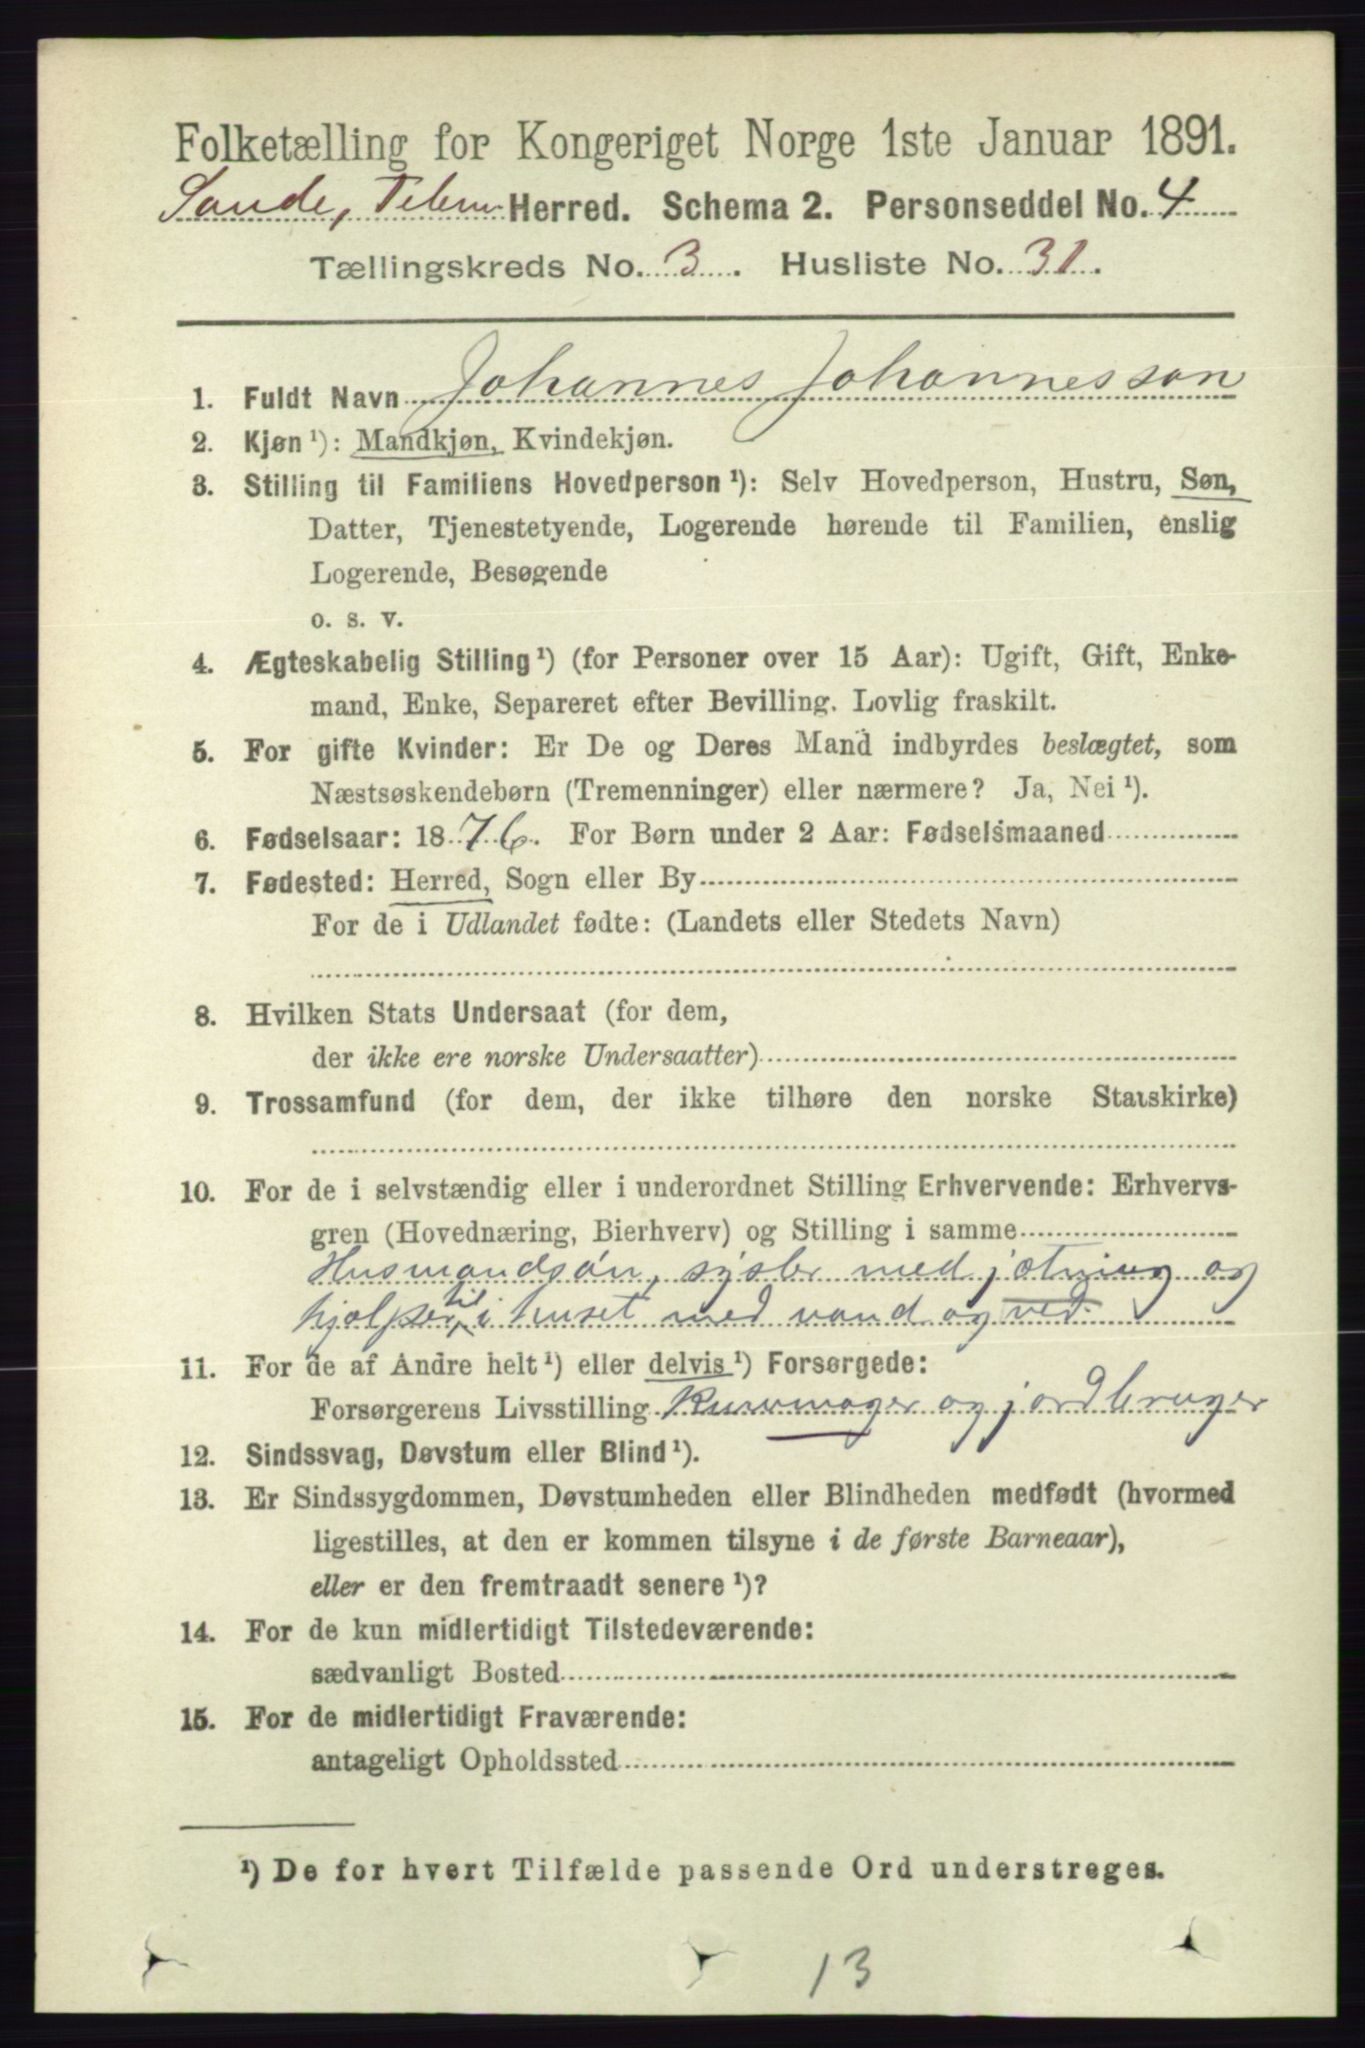 Folketælling for Kongeriget Norge 1ste Januar 1891.
Saude, Telem. Herred. Schema 2. Personseddel No. 4
Tællingskreds No. 3. Husliste No. 31.
1. Fuldt Navn Johannes Johannesson
2. Kjøn ¹): Mandkjøn, Kvindekjøn.
3. Stilling til Familiens Hovedperson ¹): Selv Hovedperson, Hustru, Søn,
Datter, Tjenestetyende, Logerende hørende til Familien, enslig
Logerende, Besøgende
o. s. v.
4. Ægteskabelig Stilling ¹) (for Personer over 15 Aar): Ugift, Gift, Enke-
mand, Enke, Separeret efter Bevilling. Lovlig fraskilt.
5. For gifte Kvinder: Er De og Deres Mand indbyrdes beslægtet, som
Næstsøskendebørn (Tremenninger) eller nærmere? Ja, Nei ¹).
6. Fødselsaar: 1876. For Børn under 2 Aar: Fødselsmaaned
7. Fødested: Herred, Sogn eller By
For de i Udlandet fødte: (Landets eller Stedets Navn)
8. Hvilken Stats Undersaat (for dem,
der ikke ere norske Undersaatter)
9. Trossamfund (for dem, der ikke tilhøre den norske Statskirke)
10. For de i selvstændig eller i underordnet Stilling Erhvervende: Erhvervs-
gren (Hovednæring, Bierhverv) og Stilling i samme
Husmandsøn, sysler med jætning og
hjælper til i huset med vand og ved.
11. For de af Andre helt ¹) eller delvis ¹) Forsørgede:
Forsørgerens Livsstilling Kurvmager og jordbruger
12. Sindssvag, Døvstum eller Blind ¹).
13. Er Sindssygdommen, Døvstumheden eller Blindheden medfødt (hvormed
ligestilles, at den er kommen tilsyne i de første Barneaar),
eller er den fremtraadt senere ¹)?
14. For de kun midlertidigt Tilstedeværende:
sædvanligt Bosted
15. For de midlertidigt Fraværende:
antageligt Opholdssted
¹) De for hvert Tilfælde passende Ord understreges.
13